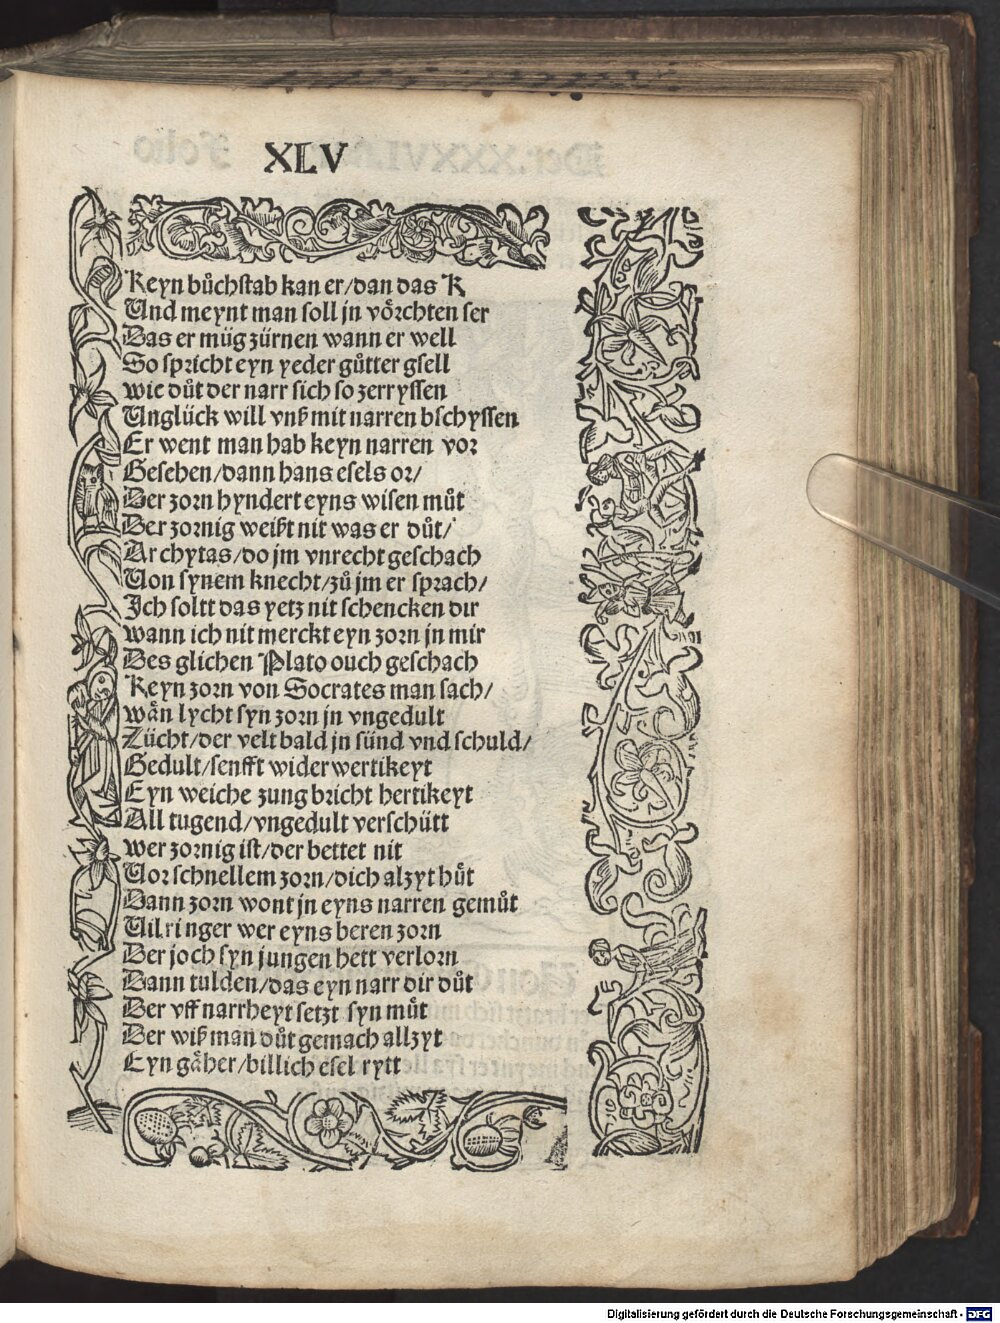 XLV
Keyn bůchstab kan er/dan das R
Und meynt man soll jn võrchten ser
Das er müg zürnen wann er well
So spricht eyn yeder gůtter gsell
wie důt der narr sich so zerryssen
Unglück will vnß mit narren bschyssen
Er went man hab keyn narren vor
Gesehen/dann hans esels or/
Der zorn hyndert eyns wisen můt
Der zornig weißt nit was er důt/
Archytas/do jm vnrecht geschach
Von synem knecht/zů jm er sprach/
Ich soltt das yetz nit schencken dir
wann ich nit merckt eyn zorn jn mir
Des glichen Plato ouch geschach
Keyn zorn von Socrates man sach/
wän lycht syn zorn jn vngedult
Zücht/der velt bald jn sünd vnd schuld/
Gedult/senfft wider wertikeyt
Eyn weiche zung bricht hertikeyt
All tugend/vngedult verschütt
wer zornig ist/der bettet nit
Vor schnellem zorn/dich alzyt hůt
Dann zorn wont jn eyns narren gemůt
Vil ringer wer eyns beren zorn
Der joch syn jungen hett verlorn
Dann tulden/das eyn narr dir důt
Der vff narrheyt setzt syn můt
Der wiß man důt gemach allzyt
Eyn gäher/billich esel rytt
Digitalisierung gefördert durch die Deutsche Forschungsgemeinschaft - DFG